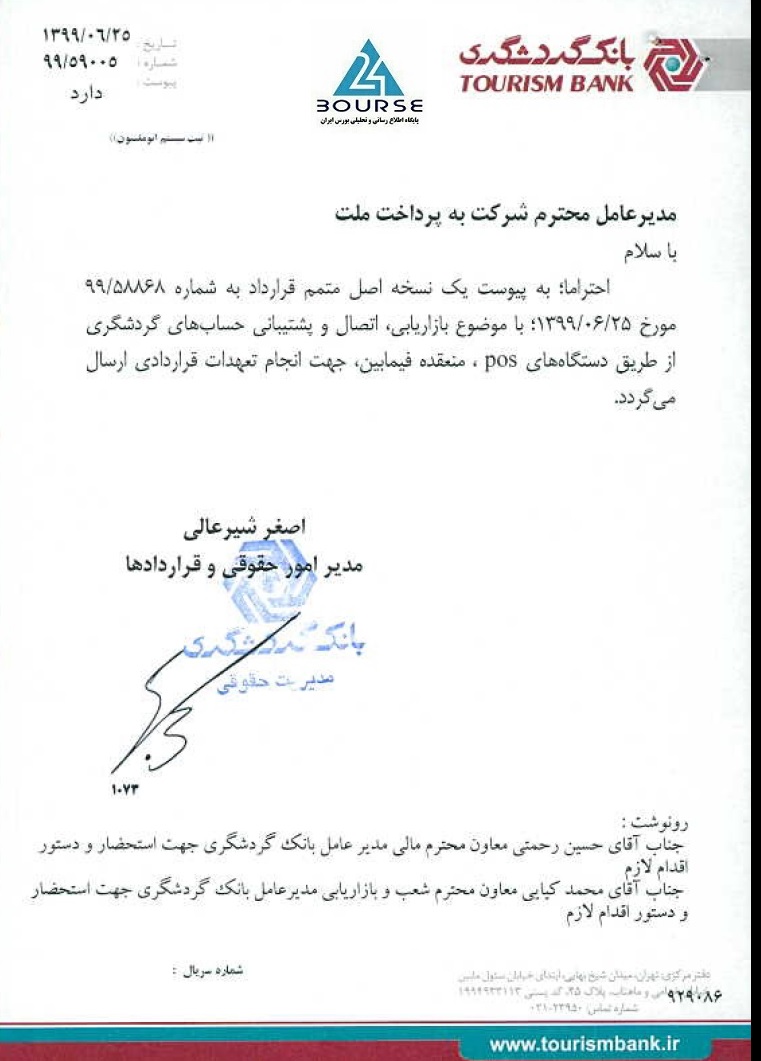 ۱۳۹۹/۰۶/۲۵
تاریخ :
۹۹/۵۹۰۰۵
شماره :
دارد
پیوست :
(( ثبت سیستم اتوماسیون ))
24
BOURSE
پایگاه اطلاع رسانی و تحلیلی بورس ایران
بانک گردشگری
TOURISM BANK
مدیرعامل محترم شرکت به پرداخت ملت
با سلام
احتراما؛ به پیوست یک نسخه اصل متمم قرارداد به شماره ۹۹/۵۸۸۶۸
مورخ ۱۳۹۹/۰۶/۲۵؛ با موضوع بازاریابی، اتصال و پشتیبانی حساب‌های گردشگری
از طریق دستگاه‌های pos ، منعقده فیمابین، جهت انجام تعهدات قراردادی ارسال
می‌گردد.
اصغر شیرعالی
مدیر امور حقوقی و قراردادها
بانک گردشگری
مدیریت حقوقی
۱۰۷۳
رونوشت :
جناب آقای حسین رحمتی معاون محترم مالی مدیر عامل بانک گردشگری جهت استحضار و دستور
اقدام لازم
جناب آقای محمد کیایی معاون محترم شعب و بازاریابی مدیرعامل بانک گردشگری جهت استحضار
و دستور اقدام لازم
شماره سریال :
دفتر مرکزی: تهران، میدان شیخ بهایی، ابتدای خیابان سئول
و ماهتاب، پلاک ۴۵، کد پستی ۱۹۹۴۹۳۳۱۱۳
۹۲۹۰۸۶
شماره تماس: ۰۲۱-۲۳۹۵۰
www.tourismbank.ir